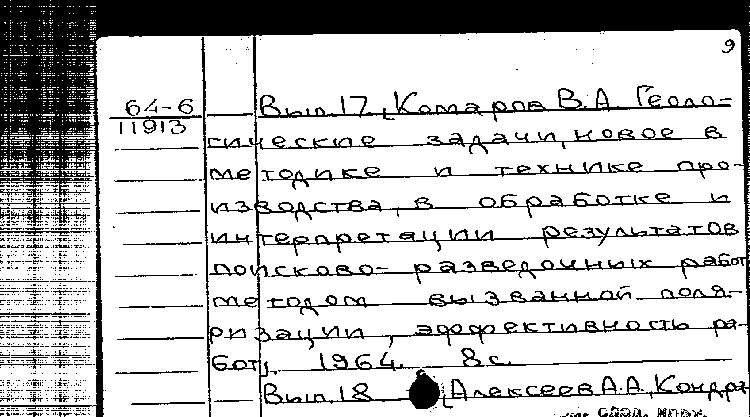 9
64-6
11913
Вып. 17. [Комаров В.А. Геоло-
гические задачи, новое в
методике и технике про-
изводства, в обработке и
интерпретации результатов
поисково-разведочных работ
методом вызванной поля-
ризации, эффективность ра-
бот]. 1964. 8 с.
Вып. 18 [Алексеев А.А., Кондра